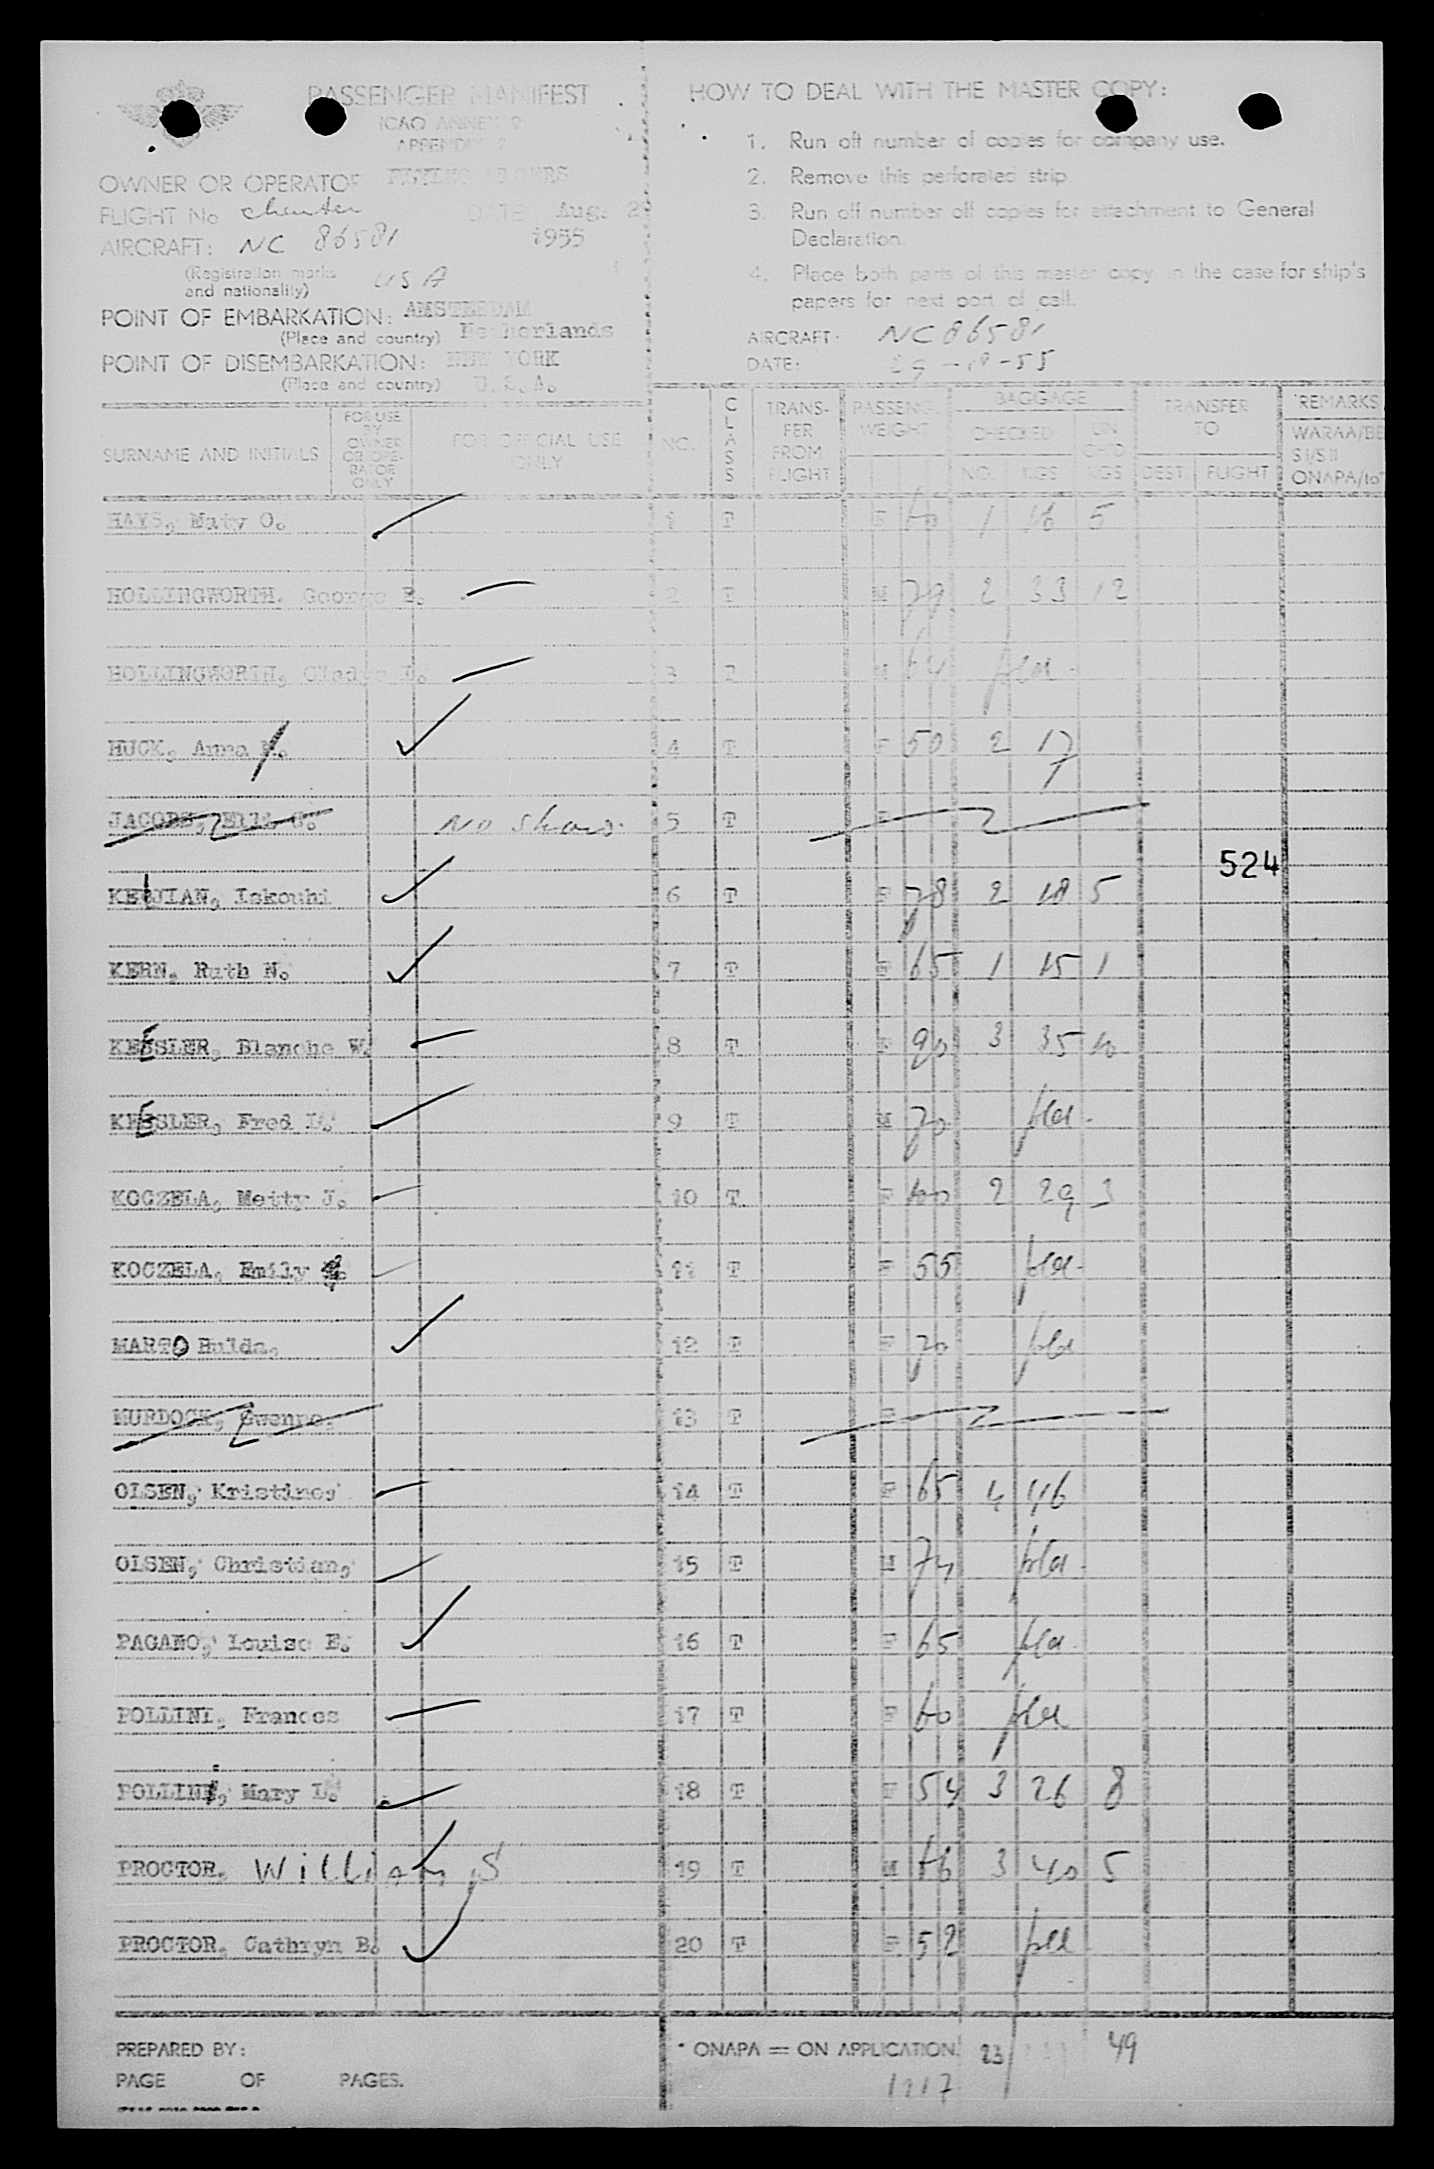 PASSENGER MANIFEST
ICAO ANNEX 9
APPENDIX 2
OWNER OR OPERATOR
FLIGHT No charter DATE Aug. 29
AIRCRAFT: NC 86581 1955
(Registration marks
and nationality) USA
POINT OF EMBARKATION: AMSTERDAM
(Place and country) Netherlands
POINT OF DISEMBARKATION: NEW YORK
(Place and country) U.S.A.
HOW TO DEAL WITH THE MASTER COPY:
1. Run off number of copies for company use.
2. Remove this perforated strip.
3. Run off number off copies for attachment to General
Declaration.
4. Place both parts of this master copy in the case for ship's
papers for next port of call.
AIRCRAFT: NC 86581
DATE: -55
SURNAME AND INITIALS
FOR USE
BY
OWNER
OR OPE-
RATOR
ONLY
FOR OFFICIAL USE
ONLY
NO.
CLASS
TRANS-
FER
FROM
FLIGHT
PASSENG.
WEIGHT
BAGGAGE
CHECKED
UN
CH'D
NO. KGS KGS
TRANSFER
TO
DEST. FLIGHT
REMARKS
WARAA/BE
SI/SII
ONAPA/to
HAYS, Mary O. 1 T F 60 1 16 5
HOLLINGWORTH, George E. 2 T M 79 2 33 12
HOLLINGWORTH, Gladys 3 T 64
HUCK, Anna 4 T F 50 2 17
JACOBS, Ella G. No Show 5 T F
524
KETJIAN, Iskouhi 6 T F 78 2 18 5
KERN, Ruth N. 7 T F 65 1 15 1
KESSLER, Blanche W. 8 T F 90 3 35 10
KESSLER, Fred 9 T M 70
KOCZELA, Metty J. 10 T F 60 2 29 3
KOCZELA, Emily 11 T F 55
MARTO Hulda, 12 T F 70
MURDOCK, Gwenne, 13 T F
OLSEN, Kristine, 14 T F 65 4 46
OLSEN, Christian, 15 T M 74
PAGANO, Louise E. 16 T F 65
POLLINI, Frances 17 T F 60
POLLINI, Mary L. 18 T F 54 3 26 8
PROCTOR, William S 19 T M 66 3 40 5
PROCTOR, Cathryn B. 20 T F 52
PREPARED BY:
PAGE OF PAGES.
* ONAPA = ON APPLICATION. 23 49
1217